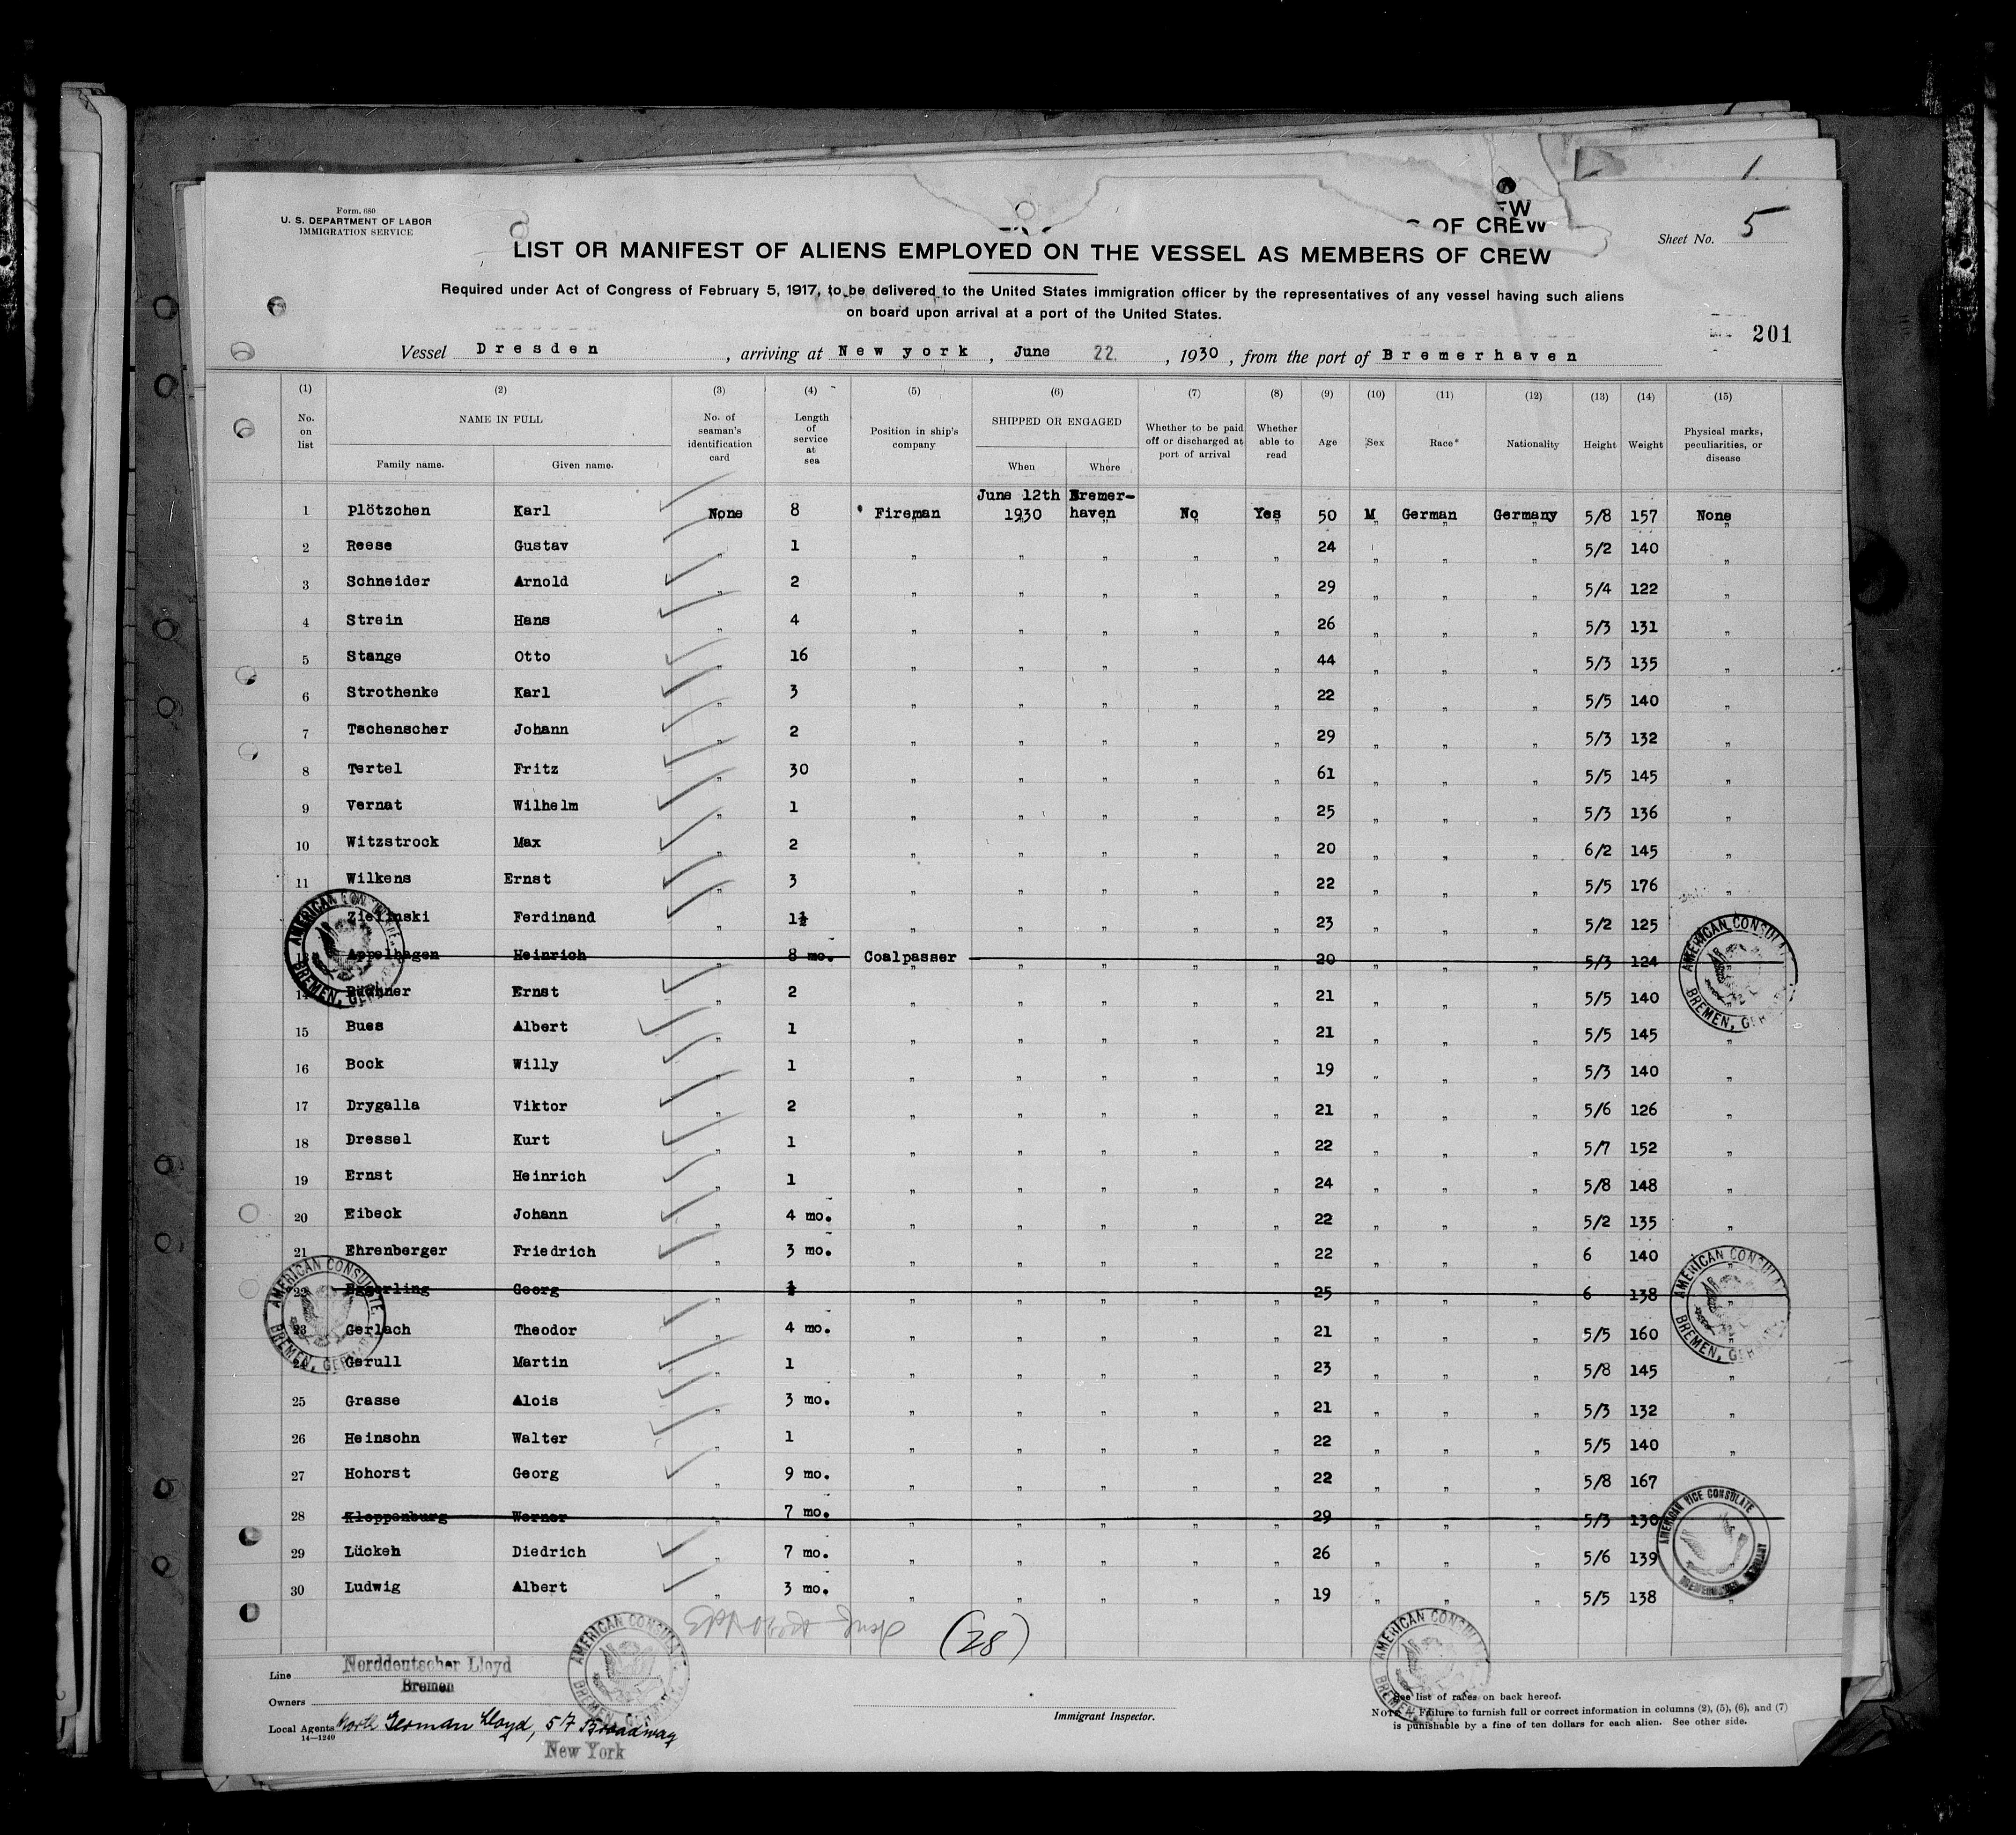 Form 680
U. S. DEPARTMENT OF LABOR
IMMIGRATION SERVICE
EW
OF CREW
Sheet No. 5
LIST OR MANIFEST OF ALIENS EMPLOYED ON THE VESSEL AS MEMBERS OF CREW
Required under Act of Congress of February 5, 1917, to be delivered to the United States immigration officer by the representatives of any vessel having such aliens
on board upon arrival at a port of the United States.
201
Vessel Dresden, arriving at New york, June 22, 1930, from the port of Bremerhaven
(1) (2) (3) (4) (5) (6) (7) (8) (9) (10) (11) (12) (13) (14) (15)
No. on list NAME IN FULL Family name. Given name. No. of seaman's identification card Length of service at sea Position in ship's company SHIPPED OR ENGAGED When Where Whether to be paid off or discharged at port of arrival Whether able to read Age Sex Race* Nationality Height Weight Physical marks, peculiarities, or disease
1 Plötzchen Karl None 8 Fireman June 12th 1930 Bremerhaven No Yes 50 M German Germany 5/8 157 None
2 Reese Gustav " 1 " " " " " 24 " " " 5/2 140 "
3 Schneider Arnold " 2 " " " " " 29 " " " 5/4 122 "
4 Strein Hans " 4 " " " " " 26 " " " 5/3 131 "
5 Stange Otto " 16 " " " " " 44 " " " 5/3 135 "
6 Strothenke Karl " 3 " " " " " 22 " " " 5/5 140 "
7 Tschenscher Johann " 2 " " " " " 29 " " " 5/3 132 "
8 Tertel Fritz " 30 " " " " " 61 " " " 5/5 145 "
9 Vernat Wilhelm " 1 " " " " " 25 " " " 5/3 136 "
10 Witzstrock Max " 2 " " " " " 20 " " " 6/2 145 "
11 Wilkens Ernst " 3 " " " " " 22 " " " 5/5 176 "
Zielinski Ferdinand " 1½ " " " " " 23 " " " 5/2 125 "
13 Appelhagen Heinrich 8 mo. Coalpasser " " " " 20 " " " 5/3 124
14 Ernst " 2 " " " " " 21 " " " 5/5 140
15 Bues Albert " 1 " " " " " 21 " " " 5/5 145 "
16 Bock Willy " 1 " " " " " 19 " " " 5/3 140 "
17 Drygalla Viktor " 2 " " " " " 21 " " " 5/6 126 "
18 Dressel Kurt " 1 " " " " " 22 " " " 5/7 152 "
19 Ernst Heinrich " 1 " " " " " 24 " " " 5/8 148 "
20 Eibeck Johann " 4 mo. " " " " " 22 " " " 5/2 135 "
21 Ehrenberger Friedrich " 3 mo. " " " " " 22 " " " 6 140
22 Eggerling Georg " ½ " " " " " 25 " " " 6 138
23 Gerlach Theodor " 4 mo. " " " " " 21 " " " 5/5 160
24 Gerull Martin " 1 " " " " " 23 " " " 5/8 145 "
25 Grasse Alois " 3 mo. " " " " " 21 " " " 5/3 132 "
26 Heinsohn Walter " 1 " " " " " 22 " " " 5/5 140 "
27 Hohorst Georg " 9 mo. " " " " " 22 " " " 5/8 167
28 Kloppenburg Werner " 7 mo. " " " " " 29 " " " 5/3 130
29 Lücken Diedrich " 7 mo. " " " " " 26 " " " 5/6 139
30 Ludwig Albert " 3 mo. " " " " " 19 " " " 5/5 138 "
(28)
AMERICAN CONSULATE BREMEN, GERMANY
AMERICAN CONSULATE BREMEN, GERMANY
AMERICAN CONSULATE BREMEN, GERMANY
AMERICAN CONSULATE BREMEN, GERMANY
AMERICAN VICE CONSULATE
AMERICAN CONSULATE BREMEN
AMERICAN CONSULATE BREMEN
Line Norddeutscher Lloyd
Bremen
Owners
Local Agents North German Lloyd, 57 Broadway
New York
14—1240
Immigrant Inspector.
See list of races on back hereof.
NOTE.—Failure to furnish full or correct information in columns (2), (5), (6), and (7)
is punishable by a fine of ten dollars for each alien. See other side.